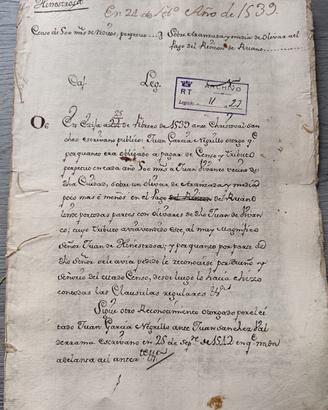 Hinestrosa
En 21 de Feb.º Año de 1539.
Censo de 500 mrs de tributo, perpetuo Sobre aranzada y media de olivar al
pago del de
Caj. Leg. N
ARCHIVO
RT
Legado 11 22
25
En à 21 de Febrero de 1539 ante
chez escribano publico: Juan Garcia Negrillo otorgó q.
por quanto era obligado a pagar de Censo y Tributo
perpetuo en cada año 500 mrs a Juan vecino de
dha Ciudad, sobre un olivar de aranzada y media
poco mas ò menos en el Pago del
linde por todas partes con olivares de dho Juan de
co; cuyo Tributo havia vendido este al muy Magnifico
Señor Juan de Hinestrosa; y por quanto por parte de
dho Señor se le avia pedido le reconociese por Dueño y
Señor del citado Censo, desde luego lo hacia è hizo
con todas las Clausulas regulares
Sigue otro Reconocimiento otorgado por el ci
tado Juan Garcia Negrillo ante Juan sanchez
derrama escrivano en 25 de Sep.re de 1542
adelante